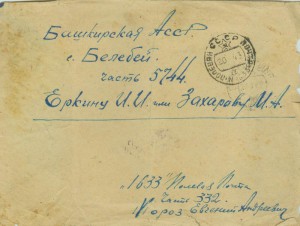 Башкирская АССР
г. Белебей
часть 5744
Еркину И.И. или Захарову И.А.
1633 Полевая Почта
Часть 332
Мороз Евгений Андреевич